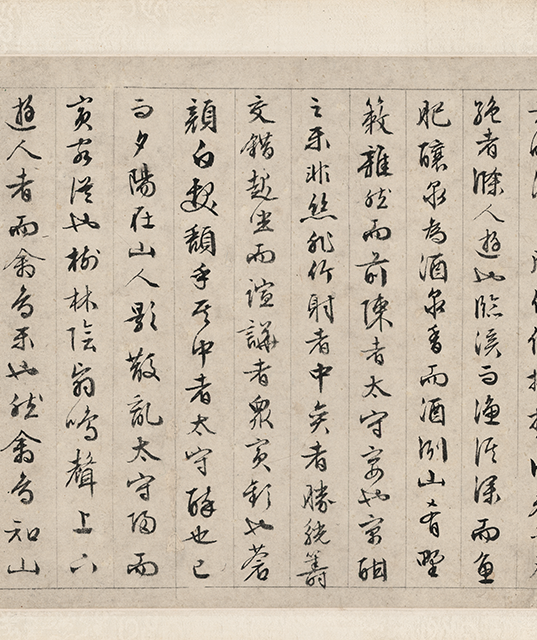 絕者滁人遊也臨溪而漁溪深而魚
肥釀泉為酒泉香而酒冽山肴野
蔌雜然而前陳者太守宴也宴酣
之樂非絲非竹射者中奕者勝觥籌
交錯起坐而諠譁者眾賓歡也蒼
顏白髮頹乎其中者太守醉也已
而夕陽在山人影散亂太守歸而
賓客從也樹林陰翳鳴聲上下
遊人者而禽鳥樂也然禽鳥知山